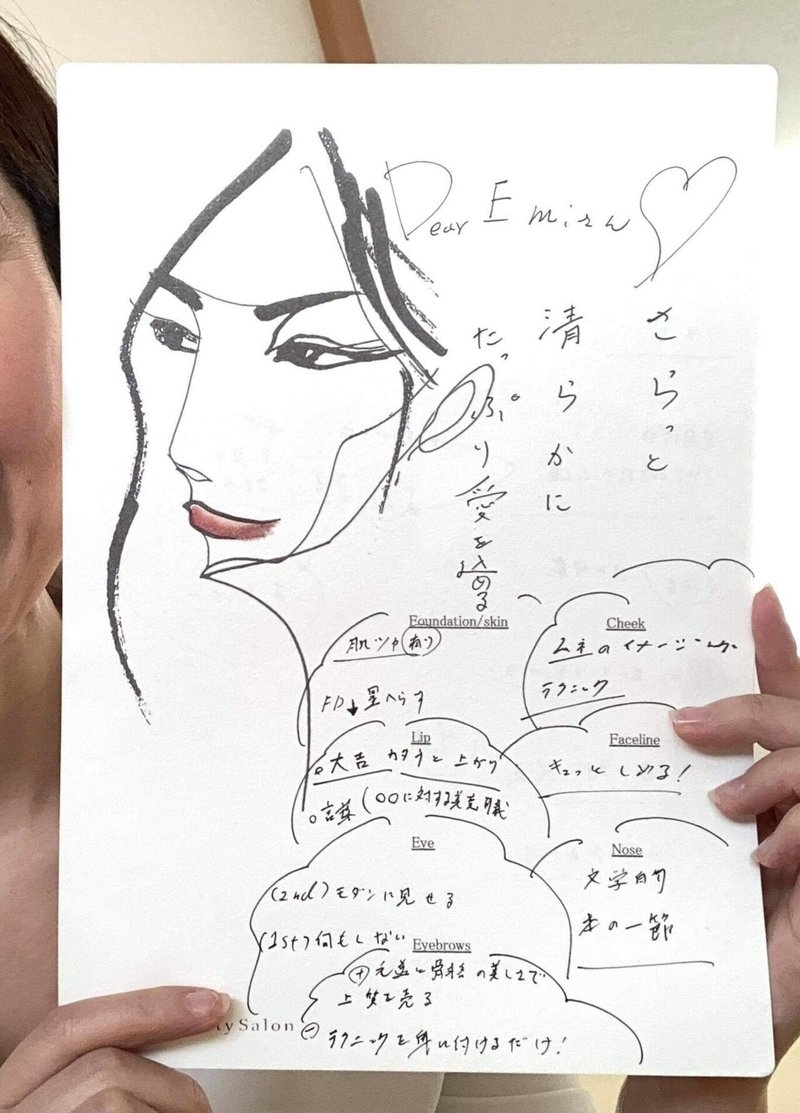 Dear Emiん
さらっと
清らかに
たっぷり愛を込める
Foundation/skin
肌ツヤ(有り)
FD↓ 量へらす
Cheek
ムネのイメージ
テクニック
Lip
○大吉 カタチと上がり
○言葉(○○に対する
Faceline
キュッとしめる!
Eye
(2nd)モダンに見せる
(1st)何もしない
Nose
文学的
本の一節
Eyebrows
⊕ 元並と骨格の美しさで
上質を売る
⊖ テクニックを身に付けるだけ!
ty Salon